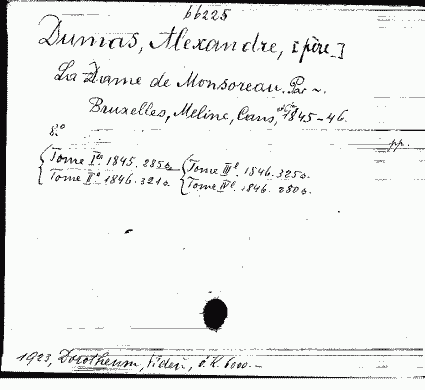 66225
Dumas, Alexandre, [père]
La Dame de Monsoreau. Par ~.
Bruxelles, Meline, Cans, 1845-46.
8° pp.
Tome I. 1845. 285 Tome III. 1846. 325
Tome II. 1846. 321 Tome IV. 1846. 280
1923, Dorotheum, ö. K. 6000.-